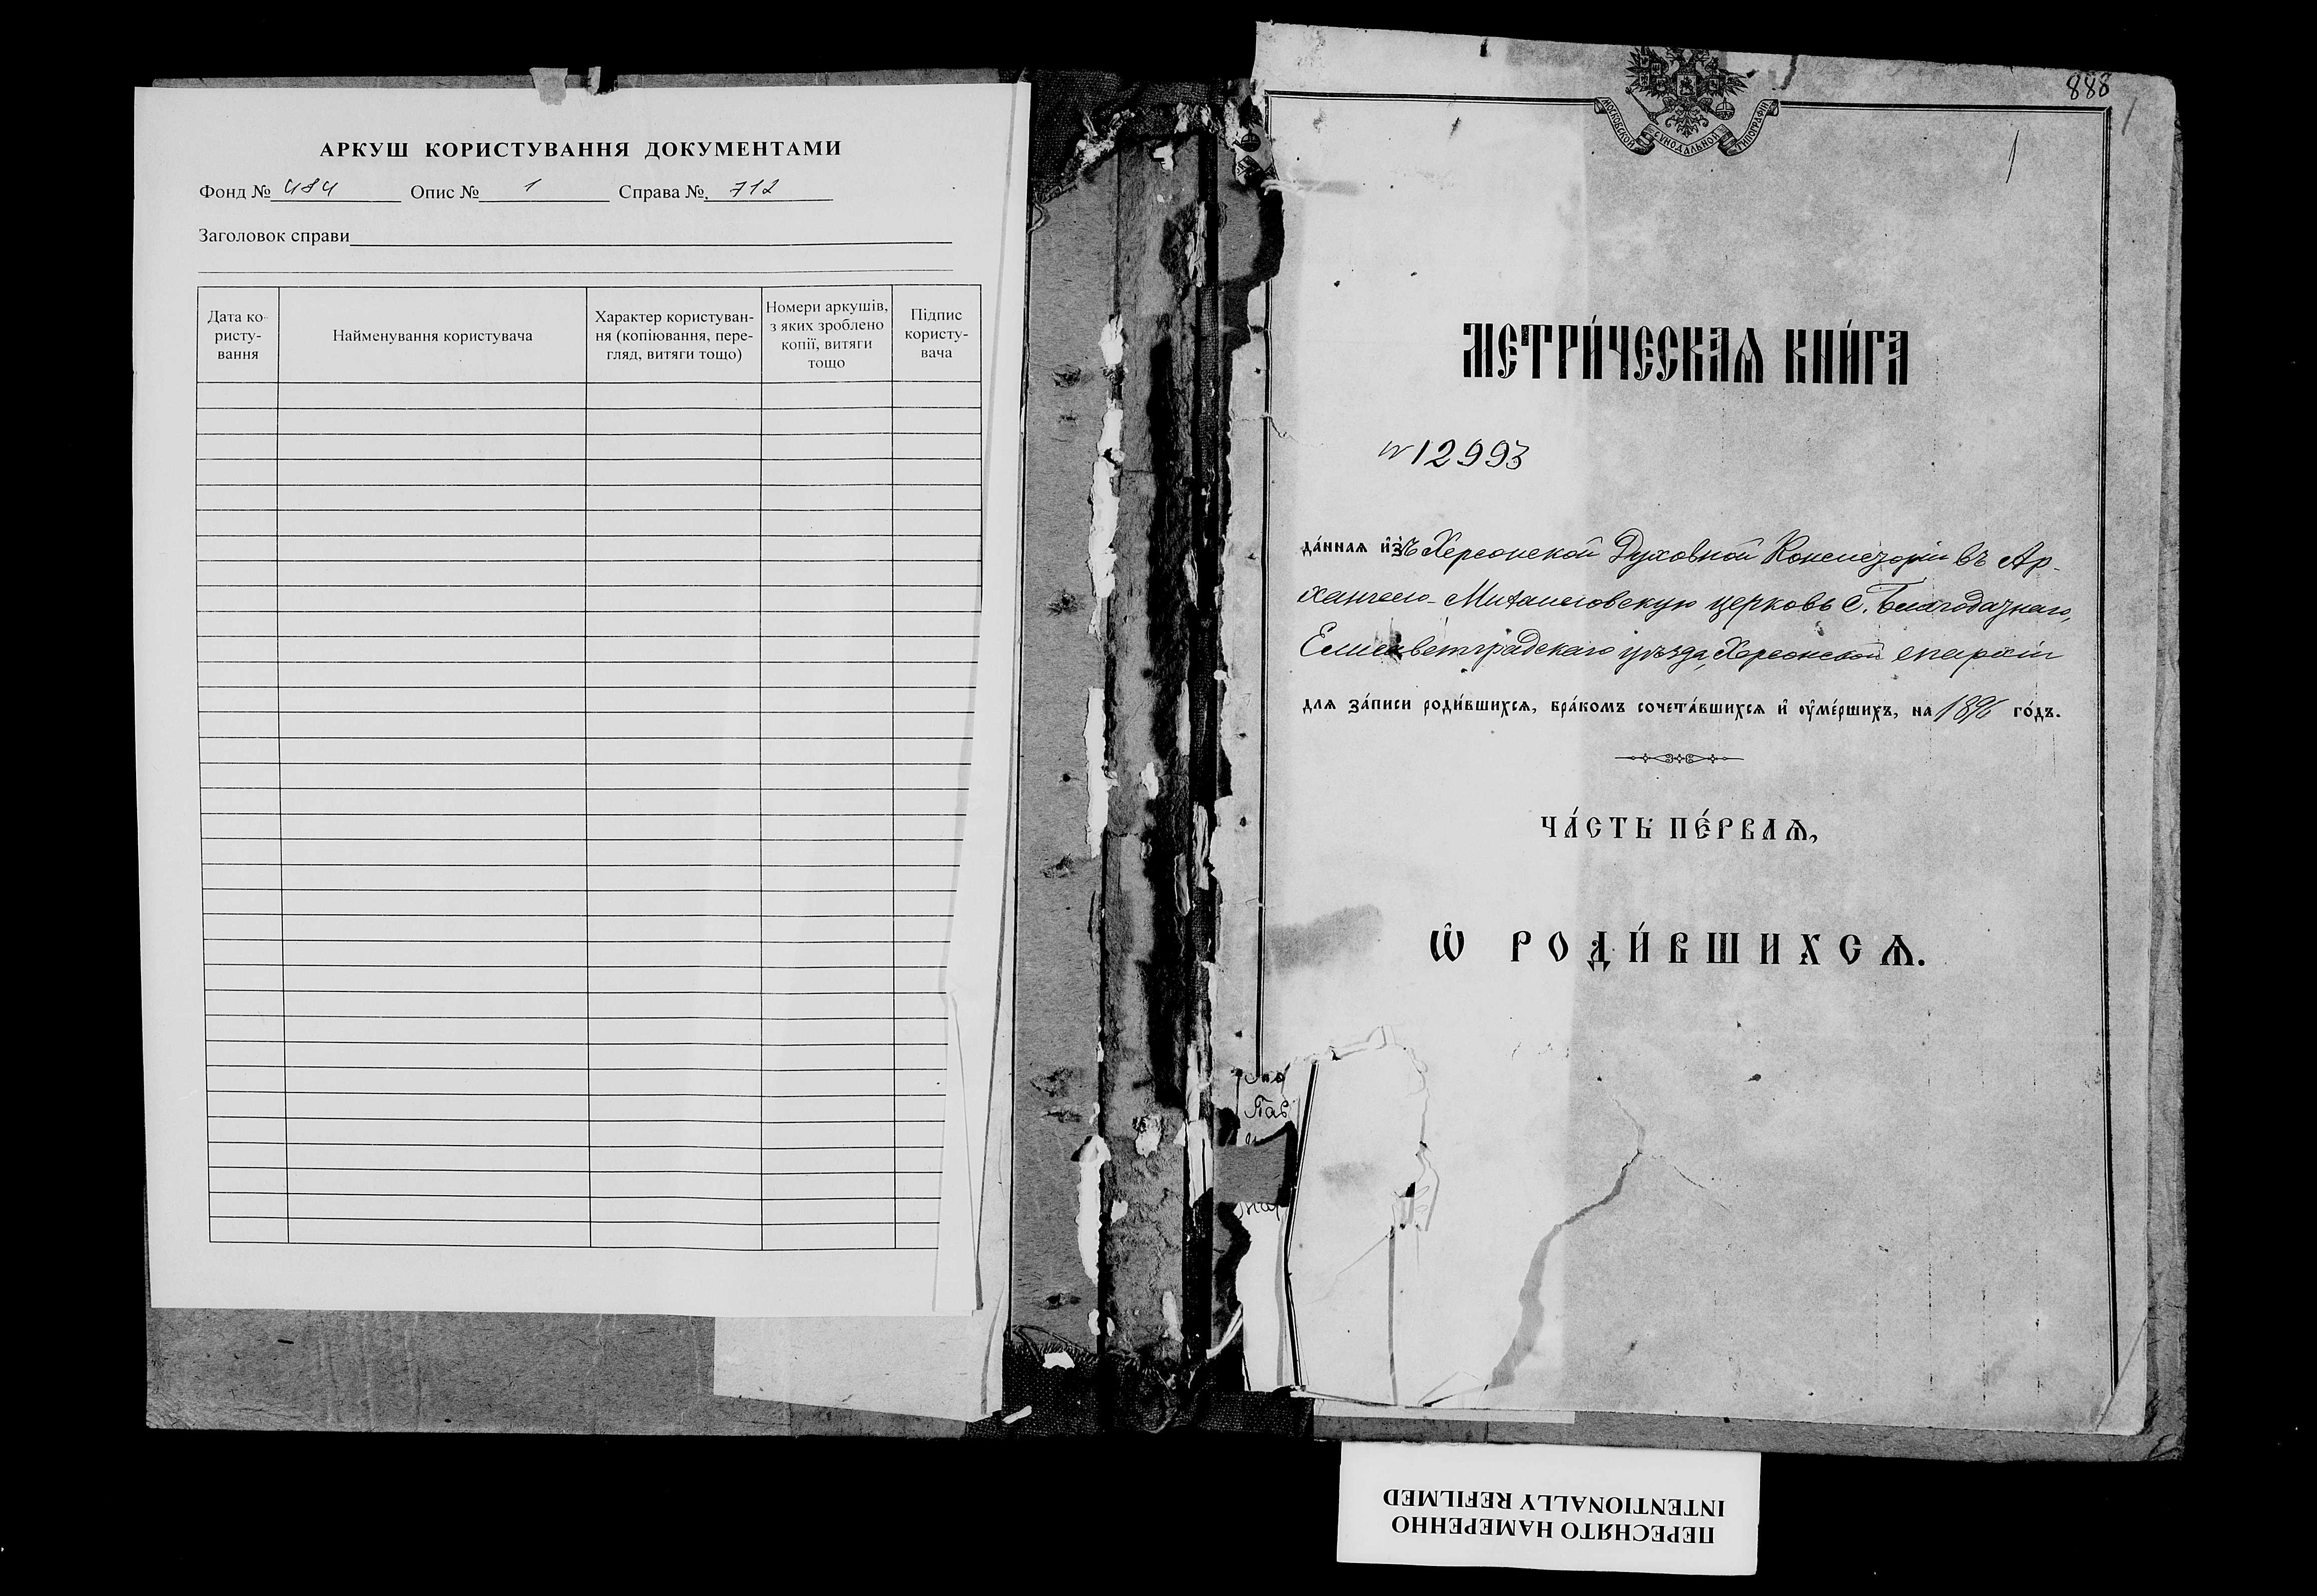 АРКУШ КОРИСТУВАННЯ ДОКУМЕНТАМИ
Фонд № 484 Опис № 1 Справа № 712
Заголовок справи
Дата ко-
ристу-
вання
Найменування користувача
Характер користуван-
ня (копіювання, пере-
гляд, витяги тощо)
Номери аркушів,
з яких зроблено
копії, витяги
тощо
Підпис
користу-
вача
888
1
МОСКОВСКОЙ СѴНОДАЛЬНОЙ ТИПОГРАФІИ
МЕТРИ́ЧЕСКАѦ КНИ́ГА
№ 12993
да́ннаѧ и҆зъ Херсонской Духовной Консисторіи въ Ар-
хангело-Михайловскую церковь с. Благодатнаго,
Елисаветградскаго уѣзда, Херсонской епархіи
длѧ за́писи роди́вшихсѧ, бра́комъ сочета́вшихсѧ и҆ ᲂу҆ме́ршихъ, на 1896 го́дъ.
ЧА́СТЬ ПЕ́РВАѦ,
Ѡ҆ РОДИ́ВШИХСѦ.
Пав
ПЕРЕСНЯТО НАМЕРЕННО
INTENTIONALLY REFILMED